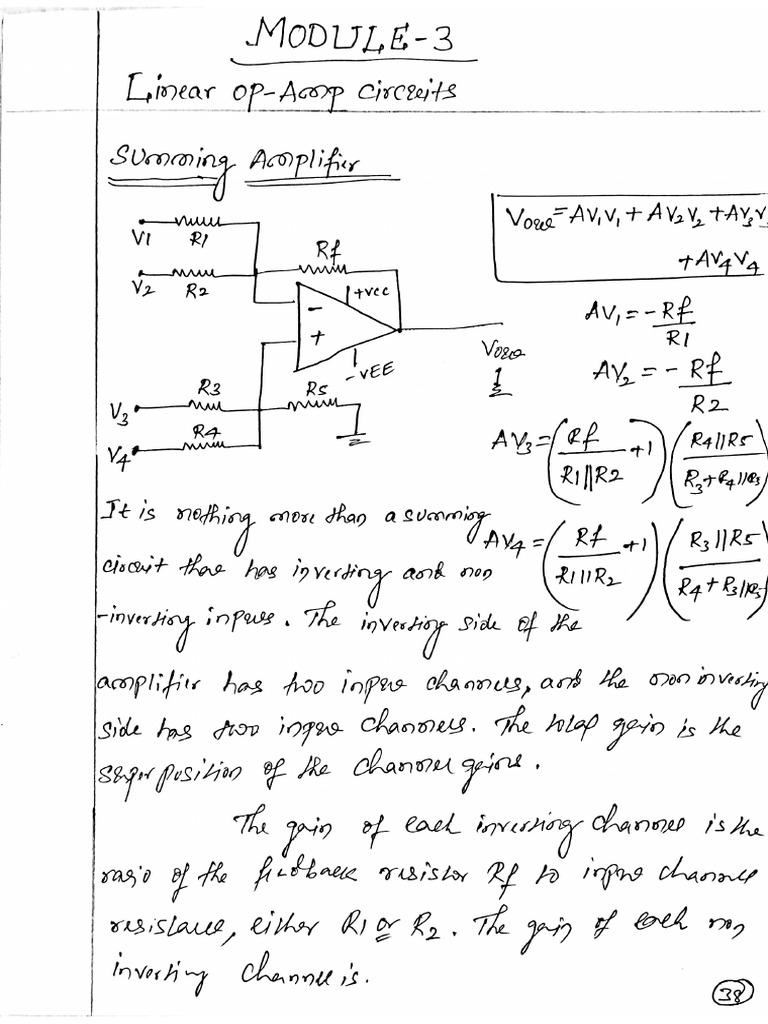 MODULE-3
Linear op-Amp circuits
Summing Amplifier
V1
R1
V2
R2
Rf
+VCC
-
+
-VEE
Vout
V3
R3
R5
V4
R4
Vout = AV1V1 + AV2V2 + AV3V3
+ AV4V4
AV1 = -Rf
R1
AV2 = - Rf
R2
AV3 = (Rf / R1||R2 + 1) (R4||R5 / R3+R4||R5)
AV4 = (Rf / R1||R2 + 1) (R3||R5 / R4+R3||R5)
It is nothing more than a summing
circuit that has inverting and non
-inverting inputs. The inverting side of the
amplifier has two input channels, and the non inverting
side has two input channels. The total gain is the
superposition of the channel gains.
The gain of each inverting channel is the
ratio of the feedback resistor Rf to input channel
resistance, either R1 or R2. The gain of each non
inverting channel is.
38